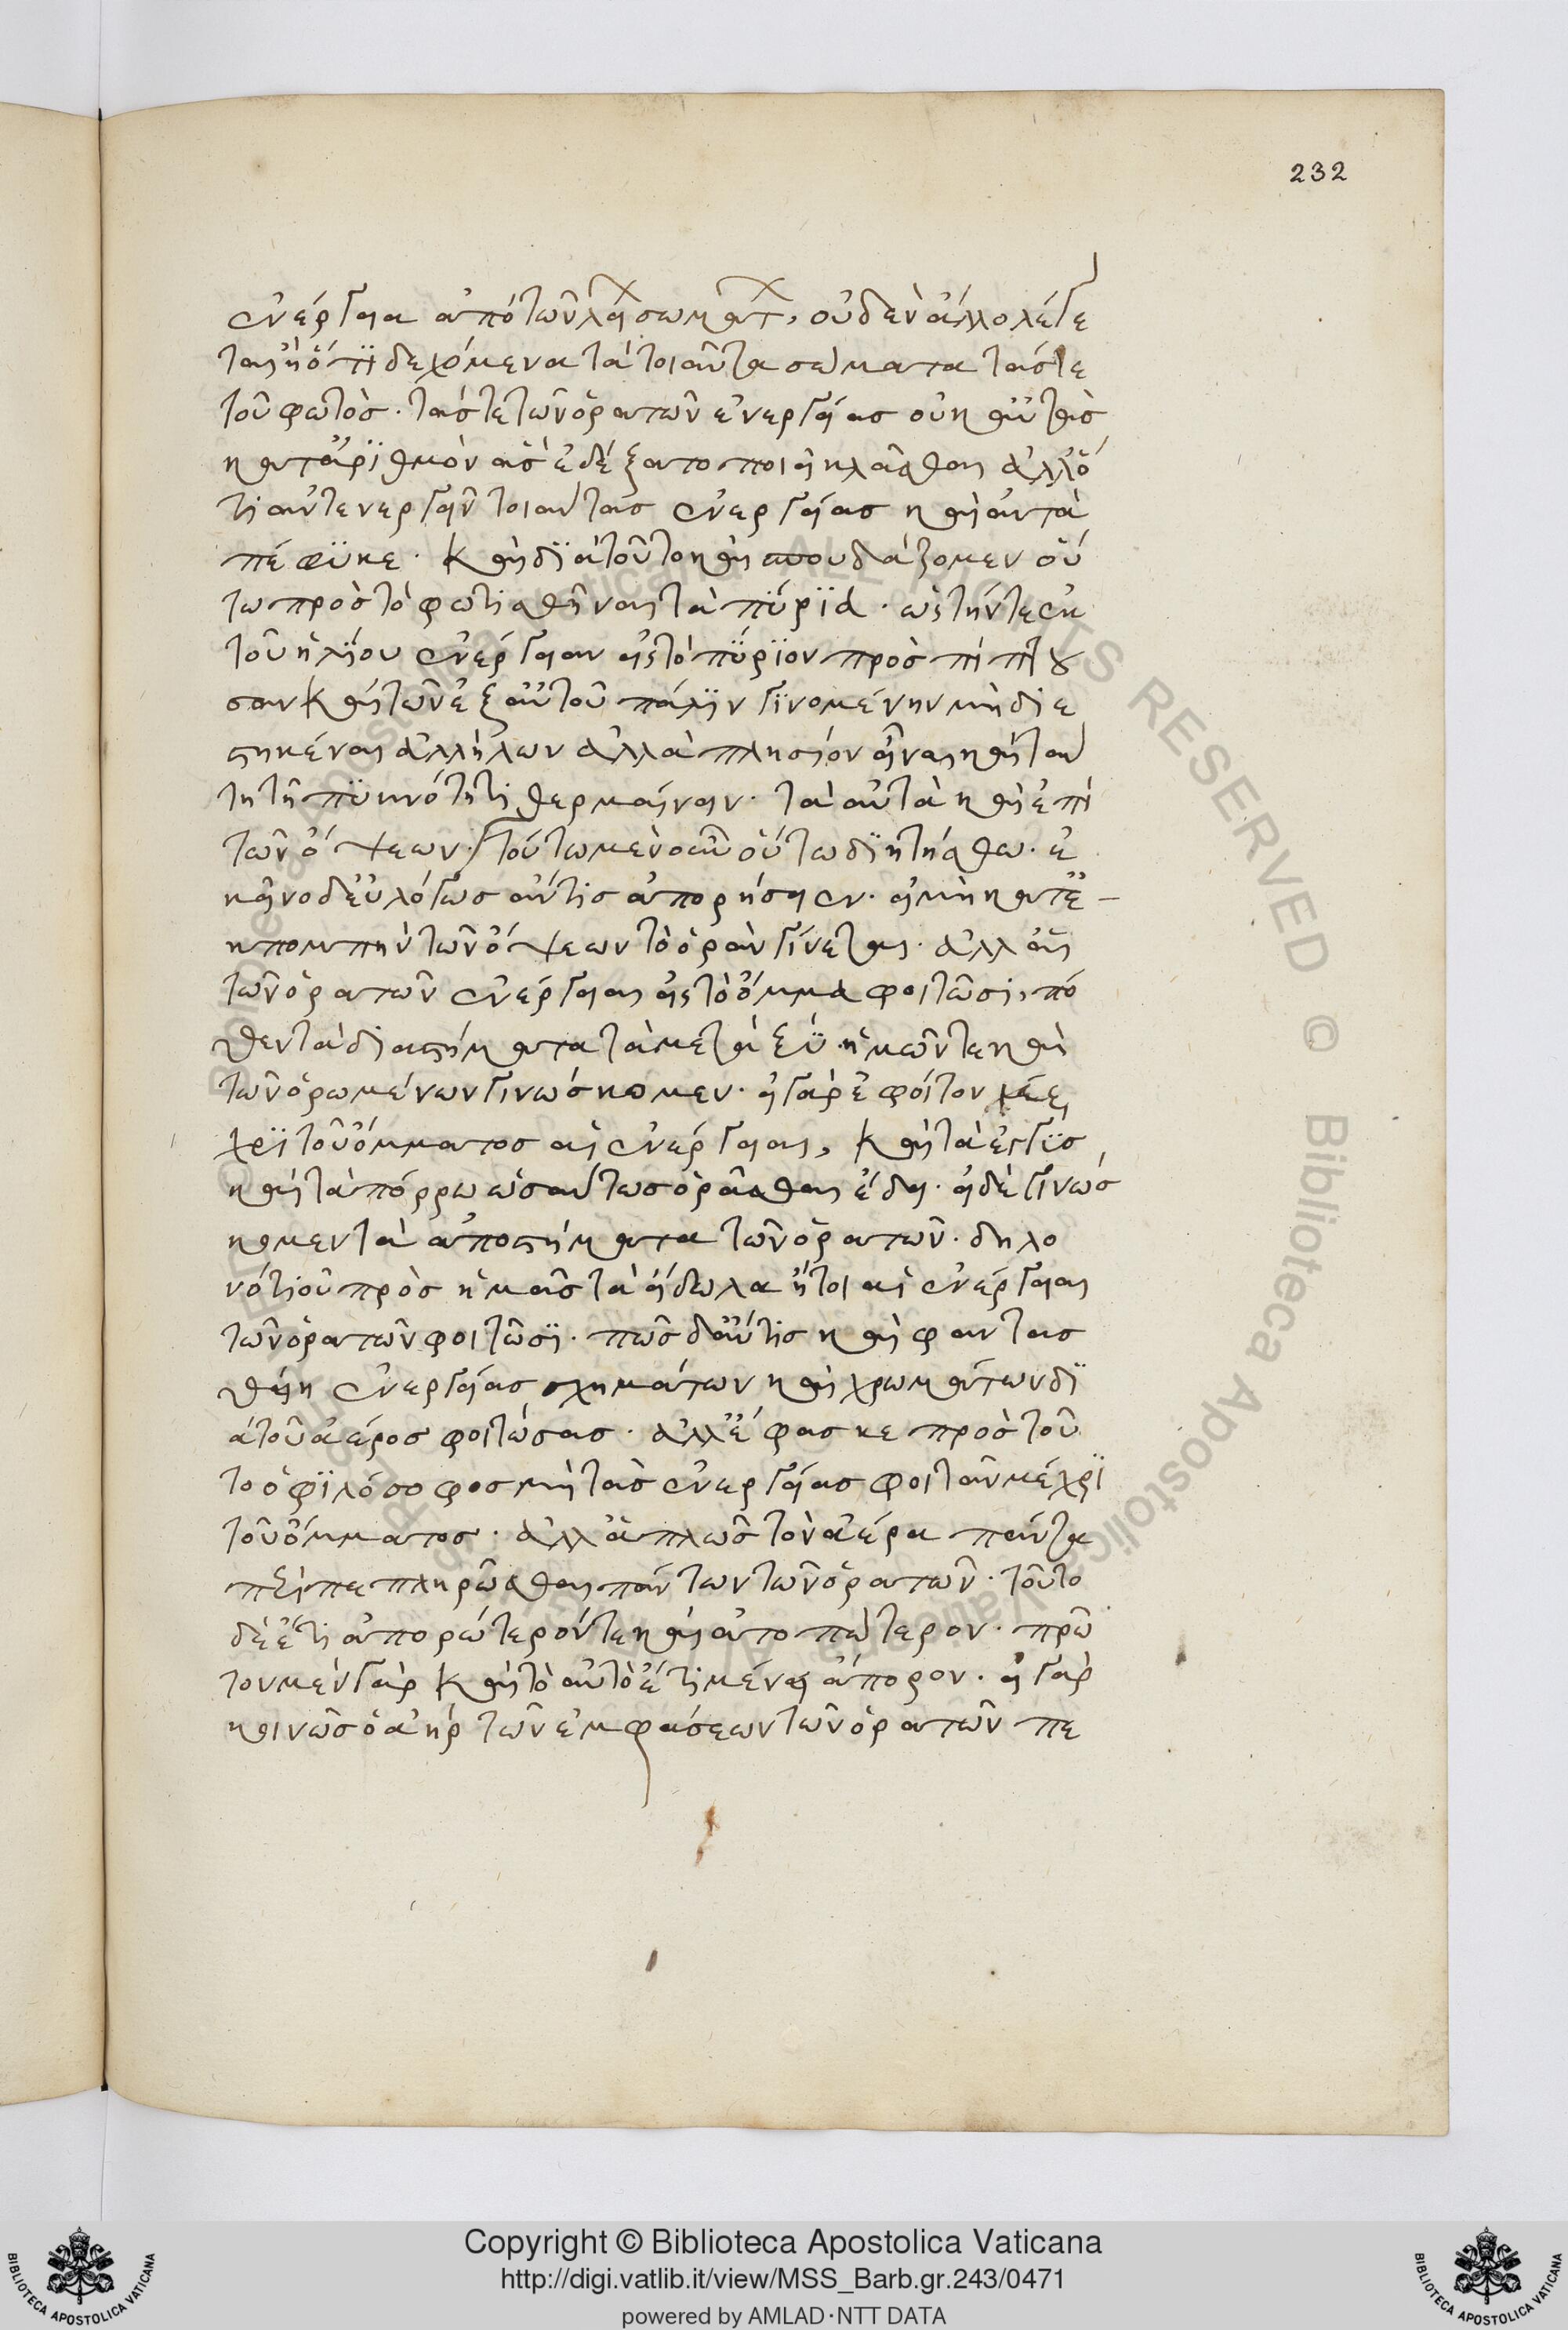 232
ἐνέργεια ἀπὸ τῶν λείων σωμάτων, οὐδὲν ἄλλο λέγε
ται ἢ ὅτι δεχόμενα τὰ τοιαῦτα σώματα τάς τε
τοῦ φωτὸς. τάς τε τῶν ὁρατῶν ἐνεργείας οὐκ αὐτὰς
κατ' ἀριθμὸν ἃς ἐδέξατο ποιεῖ κλᾶσθαι ἀλλ' ὅ
τι ἀντενεργεῖν τοιαύτας ἐνεργείας καὶ αὐτὰ
πέφυκε. Καὶ διὰ τοῦτο καὶ σπουδάζομεν οὕ
τω πρὸς τὸ φωτισθῆναι τὰ πύρια. ὡς τήν τε ἐκ
τοῦ ἡλίου ἐνέργειαν εἰς τὸ πύριον προσπίπτου
σαν Καὶ τῶν ἐξ αὐτοῦ πάλιν γινομένην μὴ διε
στηκέναι ἀλλήλων ἀλλὰ πλησίον εἶναι καὶ ταύ
τη τῆ πυκνότητι θερμαίνειν. τὰ αὐτὰ καὶ ἐπὶ
τῶν ὄψεων. τούτω μὲν οὖν οὕτω διητήσθω. ἐ
κεῖνο δ' εὐλόγως ἄν τις ἀπορήσειεν. εἰ μὴ κατ' ἐ
κπομπὴν τῶν ὄψεων τὸ ὁρᾶν γίνεται. ἀλλ' αἱ
τῶν ὁρατῶν ἐνέργειαι εἰς τὸ ὄμμα φοιτῶσι, πό
θεν τὰ διαστήματα τὰ μεταξὺ ἡμῶν τε καὶ
τῶν ὁρωμένων γινώσκομεν. εἰ γὰρ ἐφοίτον μέ
χρι τοῦ ὄμματος αἱ ἐνέργειαι, Καὶ τὰ ἐγγὺς
καὶ τὰ πόρρω ὡσαύτως ὁρᾶσθαι ἔδει. εἰ δὲ γινώσ
κομεν τὰ ἀποστήματα τῶν ὁρατῶν. δηλο
νότι οὐ πρὸς ἡμᾶς τὰ εἴδωλα ἤτοι αἱ ἐνέργειαι
τῶν ὁρατῶν φοιτῶσι. πῶς δ' ἄν τις καὶ φαντασ
θείη ἐνεργείας σχημάτων καὶ χρωμάτων δι
ὰ τοῦ ἀέρος φοιτώσας. ἀλλ' ἔφασκε πρὸς τοῦ
το ὁ φιλόσοφος μὴ τὰς ἐνεργείας φοιτᾶν μέχρι
τοῦ ὄμματος. ἀλλ' ἁπλῶς τὸν ἀέρα πάντα
πεπληρῶσθαι πάντων τῶν ὁρατῶν. τοῦτο
δὲ ἔτι ἀπορώτερόν τε καὶ ἀτοπώτερον. πρῶ
τον μὲν γὰρ Καὶ τὸ αὐτὸ ἔτι μένει ἄπορον. εἰ γὰρ
κοινῶς ὁ ἀὴρ τῶν ἐμφάσεων τῶν ὁρατῶν πε
Copyright © Biblioteca Apostolica Vaticana
http://digi.vatlib.it/view/MSS_Barb.gr.243/0471
powered by AMLAD·NTT DATA